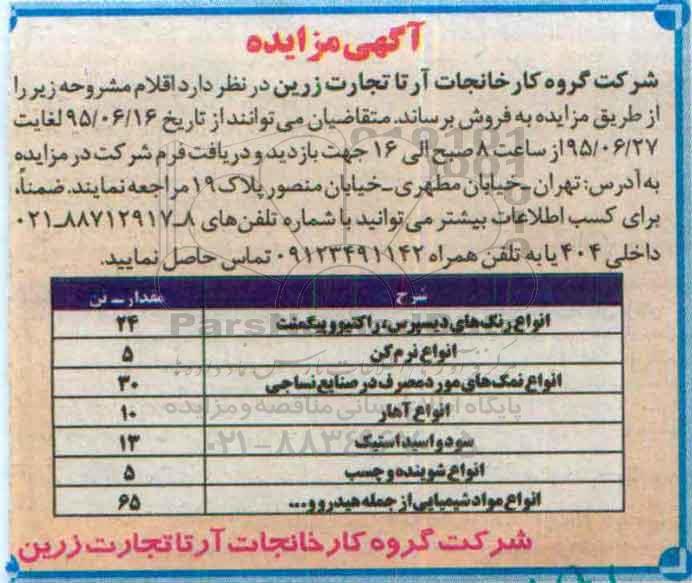 آگهی مزایده
شرکت گروه کارخانجات آرتا تجارت زرین در نظر دارد اقلام مشروحه زیر را
از طریق مزایده به فروش برساند. متقاضیان می‌توانند از تاریخ ۹۵/۰۶/۱۶ لغایت
۹۵/۰۶/۲۷ از ساعت ۸ صبح الی ۱۶ جهت بازدید و دریافت فرم شرکت در مزایده
به آدرس: تهران ـ خیابان مطهری ـ خیابان منصور پلاک ۱۹ مراجعه نمایند. ضمناً،
برای کسب اطلاعات بیشتر می‌توانید با شماره تلفن‌های ۸ـ۸۸۷۱۲۹۱۷ـ۰۲۱
داخلی ۴۰۴ یا به تلفن همراه ۰۹۱۲۳۴۹۱۱۴۲ تماس حاصل نمایید.
شرح مقدار ـ تن
انواع رنگ‌های دیسپرس، راکتیو و پیگمنت ۲۴
انواع نرم‌کن ۵
انواع نمک‌های مورد مصرف در صنایع نساجی ۳۰
پایگاه اطلاع رسانی مناقصه و مزایده
انواع آهار ۱۰
سود و اسید استیک ۱۳
انواع شوینده و چسب ۵
انواع مواد شیمیایی از جمله هیدرو و... ۶۵
شرکت گروه کارخانجات آرتا تجارت زرین